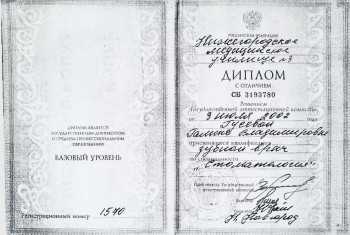 ДИПЛОМ ЯВЛЯЕТСЯ
ГОСУДАРСТВЕННЫМ ДОКУМЕНТОМ
О СРЕДНЕМ ПРОФЕССИОНАЛЬНОМ
ОБРАЗОВАНИИ
БАЗОВЫЙ УРОВЕНЬ
Регистрационный номер 1570
РОССИЙСКАЯ ФЕДЕРАЦИЯ
Нижегородское
медицинское
училище №3
ДИПЛОМ
С ОТЛИЧИЕМ
СБ 3193780
Решением
Государственной аттестационной комиссии
от 9 июля 2002
Гусовой
Галине Владимировне
присвоена квалификация
зубной врач
по специальности
"Стоматология"
Н. Новгород